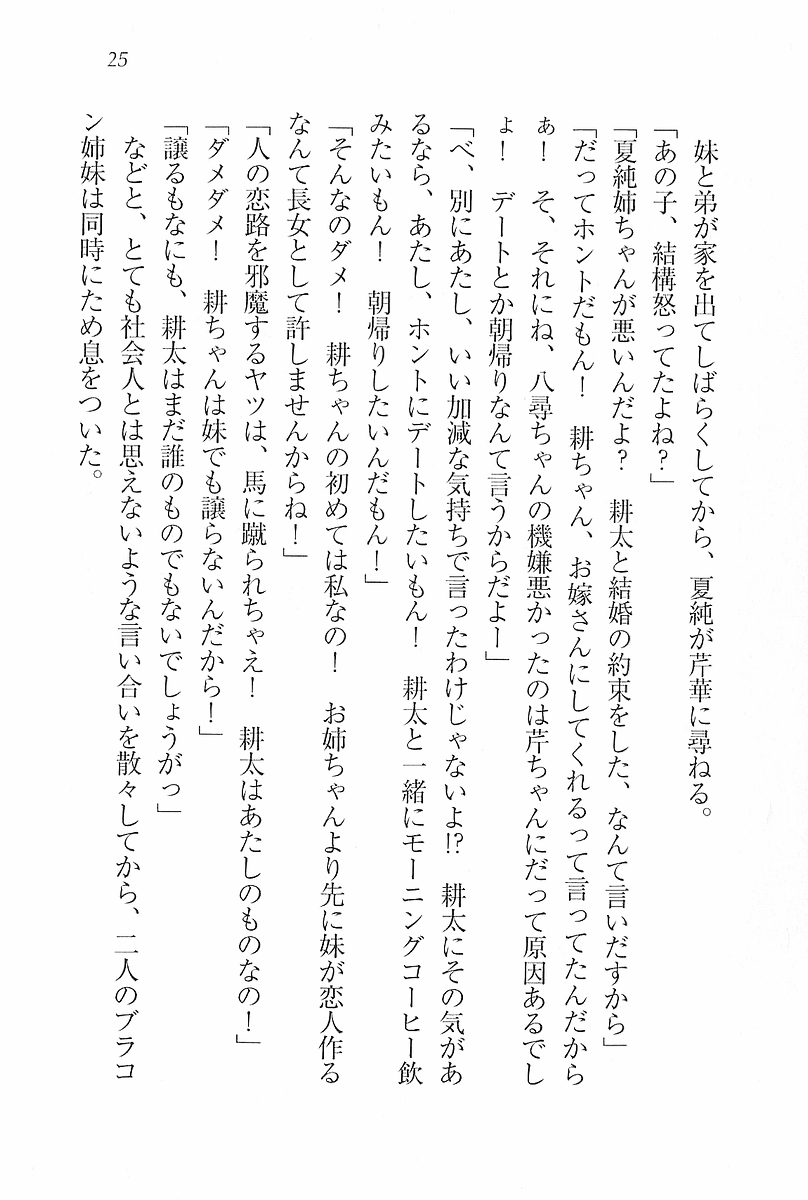 25
　妹と弟が家を出てしばらくしてから、夏純が芹華に尋ねる。
「あの子、結構怒ってたよね？」
「夏純姉ちゃんが悪いんだよ？　耕太と結婚の約束をした、なんて言いだすから」
「だってホントだもん！　耕ちゃん、お嫁さんにしてくれるって言ってたんだから
ぁ！　そ、それにね、八尋ちゃんの機嫌悪かったのは芹ちゃんにだって原因あるでし
ょ！　デートとか朝帰りなんて言うからだよー」
「べ、別にあたし、いい加減な気持ちで言ったわけじゃないよ!?　耕太にその気があ
るなら、あたし、ホントにデートしたいもん！　耕太と一緒にモーニングコーヒー飲
みたいもん！　朝帰りしたいんだもん！」
「そんなのダメ！　耕ちゃんの初めては私なの！　お姉ちゃんより先に妹が恋人作る
なんて長女として許しませんからね！」
「人の恋路を邪魔するヤツは、馬に蹴られちゃえ！　耕太はあたしのものなの！」
「ダメダメ！　耕ちゃんは妹でも譲らないんだから！」
「譲るもなにも、耕太はまだ誰のものでもないでしょうがっ」
　などと、とても社会人とは思えないような言い合いを散々してから、二人のブラコ
ン姉妹は同時にため息をついた。